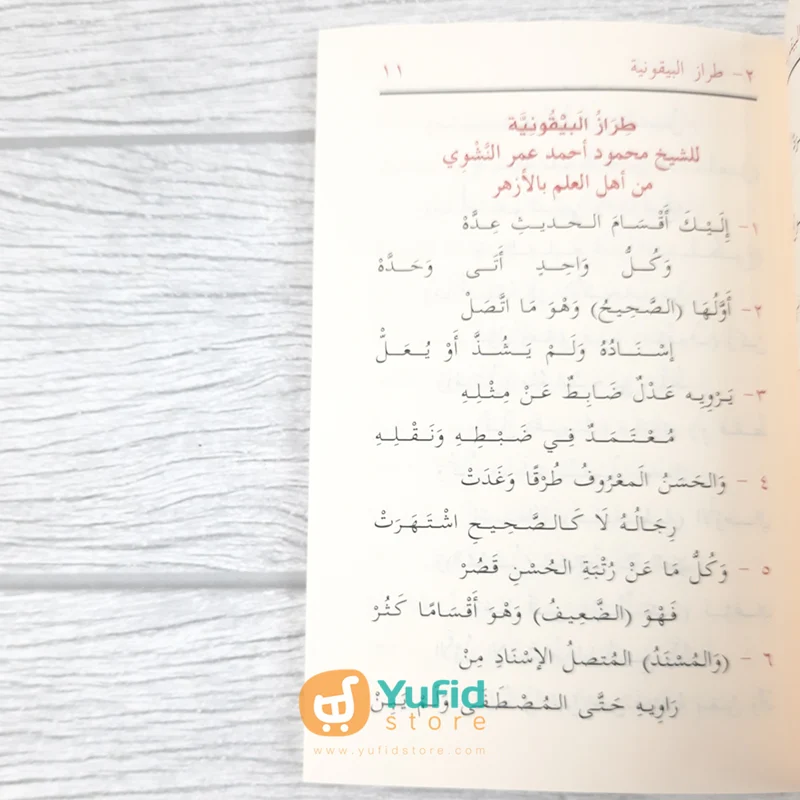 ٢- طراز البيقونية ١١
طِرَازُ الْبَيْقُونِيَّة
للشيخ محمود أحمد عمر النَّشْوِي
من أهل العلم بالأزهر
١- إِلَيْكَ أَقْسَامَ الحديثِ عِدَّهْ
وَكُلُّ وَاحِدٍ أَتَى وَحَدَّهْ
٢- أَوَّلُهَا (الصَّحِيحُ) وَهْوَ مَا اتَّصَلْ
إسْنَادُهُ وَلَمْ يَشُذَّ أَوْ يُعَلّْ
٣- يَرْوِيهِ عَدْلٌ ضَابِطٌ عَنْ مِثْلِهِ
مُعْتَمَدٌ فِي ضَبْطِهِ وَنَقْلِهِ
٤ - وَالحَسَنُ الْمَعْرُوفُ طُرْقًا وَغَدَتْ
رِجَالُهُ لَا كَالصَّحِيحِ اشْتَهَرَتْ
٥ - وَكُلُّ مَا عَنْ رُتْبَةِ الحُسْنِ قَصُرْ
فَهْوَ (الضَّعِيفُ) وَهْوَ أَقْسَامًا كَثُرْ
٦ - (وَالمُسْنَدُ) المُتصلُ الإسْنَادِ مِنْ
رَاوِيهِ حَتَّى المُصْطَفَى وَلَمْ يَبِنْ
Yufid
store
www.yufidstore.com